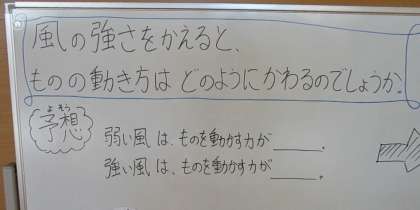 風の強さをかえると、
ものの動き方は どのようにかわるのでしょうか。
よそう
予想
弱い風は、ものを動かす力が＿＿＿。
強い風は、ものを動かす力が＿＿＿。